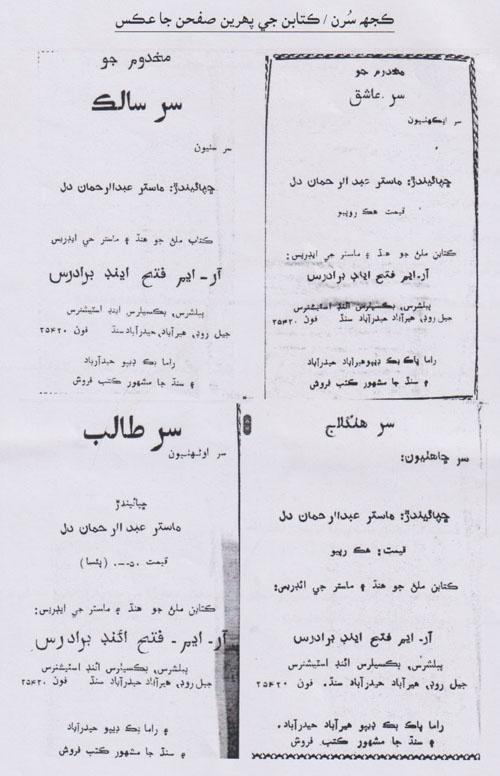 ڪجهه سُرن / ڪتابن جي پهرين صفحن جا عڪس
مخدوم جو
سر عاشق
سر ايڪهٺيون
ڇپائيندڙ: ماستر عبدالرحمان دل
قيمت هڪ روپيو
ڪتابن ملڻ جو هنڌ ۽ ماستر جي ايڊريس:
آر-ايم فتح اينڊ برادرس
پبلشرس، بڪسيلرس ائنڊ اسٽيشنرس
جيل روڊ، هيرآباد حيدرآباد سنڌ فون ۲۵۴۲۰
راما پاڪ بڪ ڊيپو هيرآباد حيدرآباد
۽ سنڌ جا مشهور ڪتب فروش
مخدوم جو
سر سالڪ
سر سٺيون
ڇپائيندڙ: ماستر عبدالرحمان دل
ڪتاب ملڻ جو هنڌ ۽ ماستر جي ايڊريس
آر - ايم فتح اينڊ برادرس
پبلشرس، بڪسيلرس اينڊ اسٽيشنرس
جيل روڊ، هيرآباد، حيدرآباد سنڌ فون ۲۵۴۲۰
راما بڪ ڊيپو حيدرآباد
۽ سنڌ جا مشهور ڪتب فروش
سر هنگلاج
سر چاهٺيون:
ڇپائيندڙ: ماستر عبدالرحمان دل
قيمت: هڪ رپيو
ڪتابن ملڻ جو هنڌ ۽ ماستر جي ائڊريس:
آر- ايم فتح اينڊ برادرس
پبلشرس، بڪسيلرس ائنڊ اسٽيشنرس
جيل روڊ، هيرآباد حيدرآباد سنڌ. فون ۲۵۴۲۰
راما پاڪ بڪ ڊيپو هيرآباد حيدرآباد.
۽ سنڌ جا مشهور ڪتب فروش
سر طالب
سر اوڻهٺيون
ڇپائيندڙ
ماستر عبدالرحمان دل
قيمت ۵۰-۰۰ (پئسا)
ڪتابن ملڻ جو هنڌ ۽ ماستر جي ايڊريس:
آر - ايم - فتح ائنڊ برادرس
پبلشرس، بڪسيلرس ائنڊ اسٽيشنرس
جيل روڊ، هيرآباد حيدرآباد سنڌ فون ۲۵۴۲۰
۽ راما بڪ ڊيپو حيدرآباد
۽ سنڌ جا مشهور ڪتب فروش